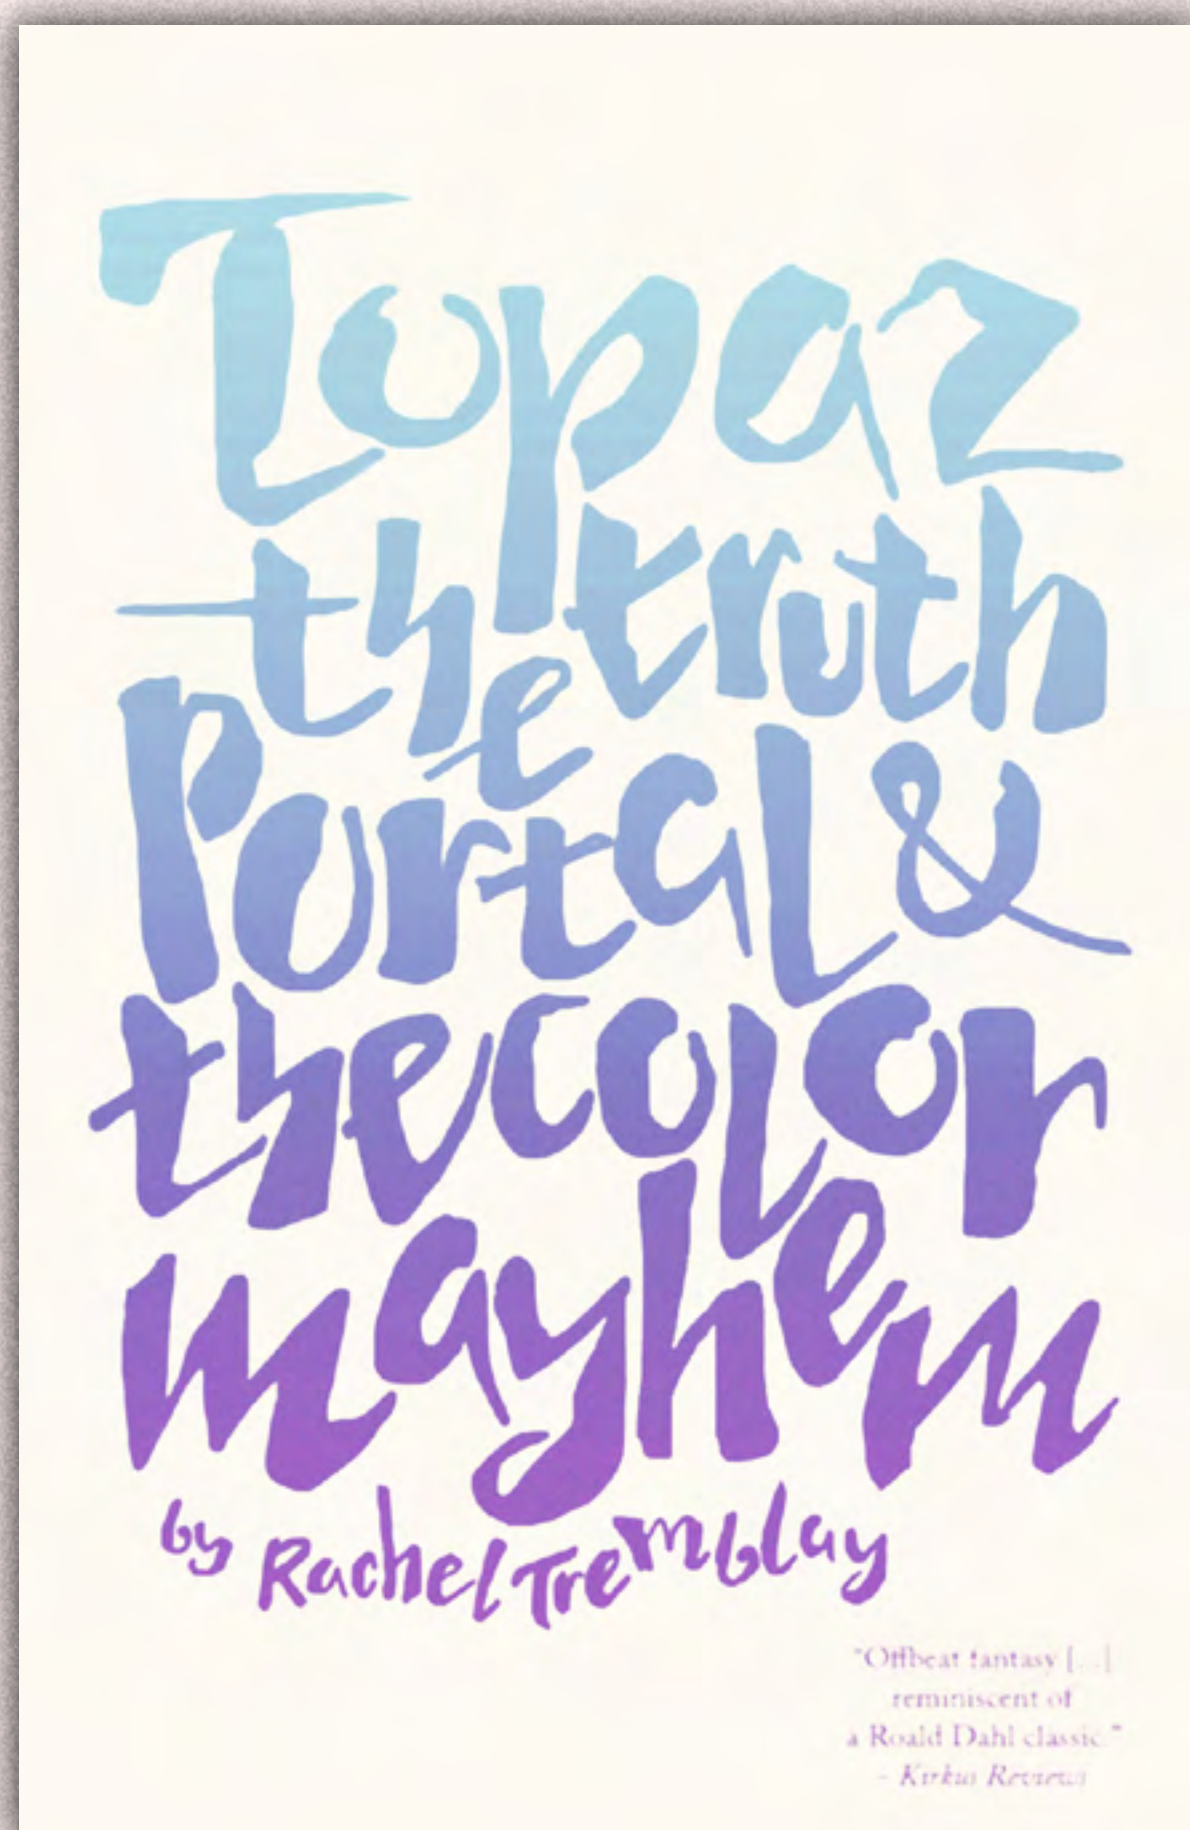 Topaz
the truth
Portal &
the color
mayhem
by Rachel Tremblay
"Offbeat fantasy [...]
reminiscent of
a Roald Dahl classic."
- Kirkus Reviews